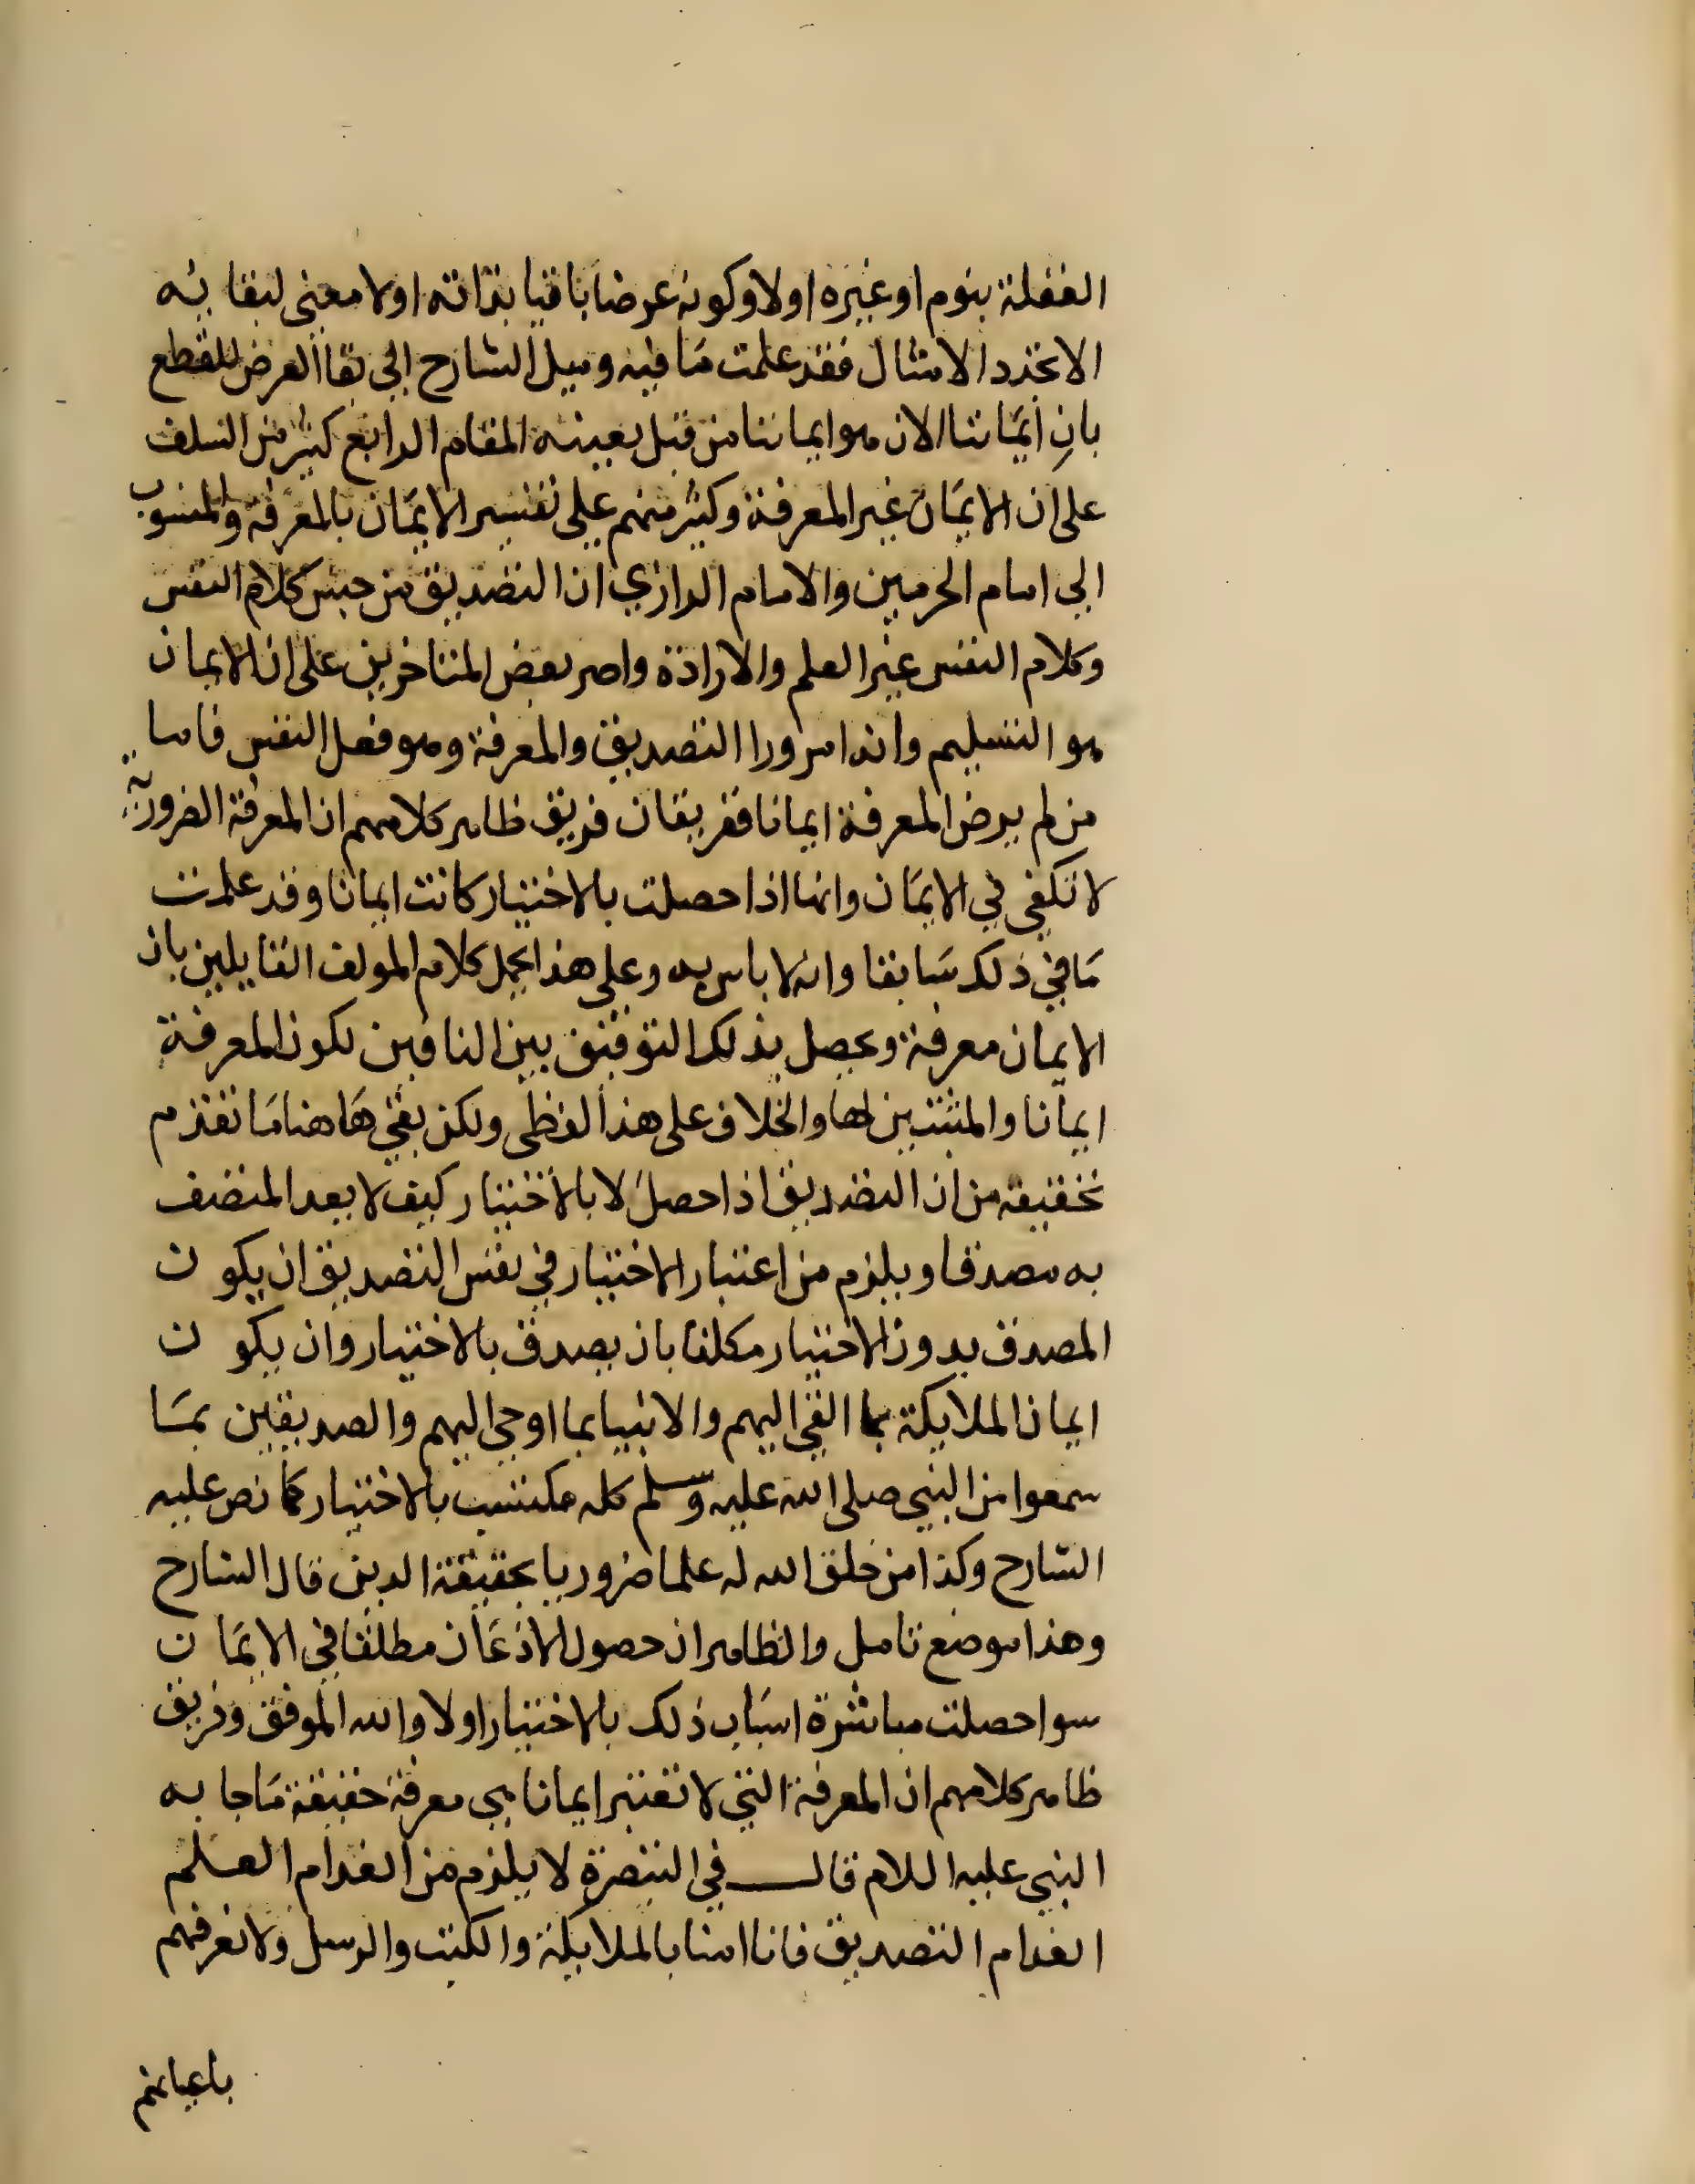 الغفلة بنوم او غيره اولا وكونه عرضا باقيا بذاته اولا معنى لبقايه
الا تجدد الامثال فقد علمت ما فيه وميل الشارح الى بقا العرض للقطع
بان ايماننا الان هو ايماننا من قبل بعينه المقام الرابع كثير من السلف
على ان الايمان غير المعرفة وكثير منهم على تفسير الايمان بالمعرفة والمنسوب
الى امام الحرمين والامام الرازي ان التصديق من جنس كلام النفس
وكلام النفس غير العلم والارادة واصر بعض المتاخرين على ان الايمان
هو التسليم وانه امر ورا التصديق والمعرفة وهو فعل النفس فاما
من لم يرض المعرفة ايمانا ففريقان فريق ظاهر كلامهم ان المعرفة الضرورية
لا تكفي في الايمان وانها اذا حصلت بالاختيار كانت ايمانا وقد علمت
ما في ذلك سابقا وانه لا باس به وعلى هذا يحمل كلام المولف القايلين بان
الايمان معرفة ويحصل بذلك التوفيق بين النافين لكون المعرفة
ايمانا والمثبتين لها والخلاف على هذا لفظي ولكن بقي هاهنا ما تقدم
تحقيقه من ان التصديق اذا حصل لا بالاختيار كيف لا يعد المتصف
به مصدقا ويلزم من اعتبار الاختيار في نفس التصديق ان يكون
المصدق بدون الاختيار مكلفا بان يصدق بالاختيار وان يكون
ايمان الملايكة بما القي اليهم والانبيا بما اوحي اليهم والصديقين بما
سمعوا من النبي صلى الله عليه وسلم كله مكتسب بالاختيار كما نص عليه
الشارح وكذا من خلق الله له علما ضروريا بحقيقة الدين قال الشارح
وهذا موضع تامل والظاهر ان حصول الاذعان مطلقا في الايمان
سوا حصلت مباشرة اسباب ذلك بالاختيار اولا والله الموفق وفريق
ظاهر كلامهم ان المعرفة التي لا تعتبر ايمانا هي معرفة حقيقة ما جا به
النبي عليه اللام قال في التبصرة لا يلزم من انعدام العلم
انعدام التصديق فانا امنا بالملايكة والكتب والرسل ولا نعرفهم
باعيانهم